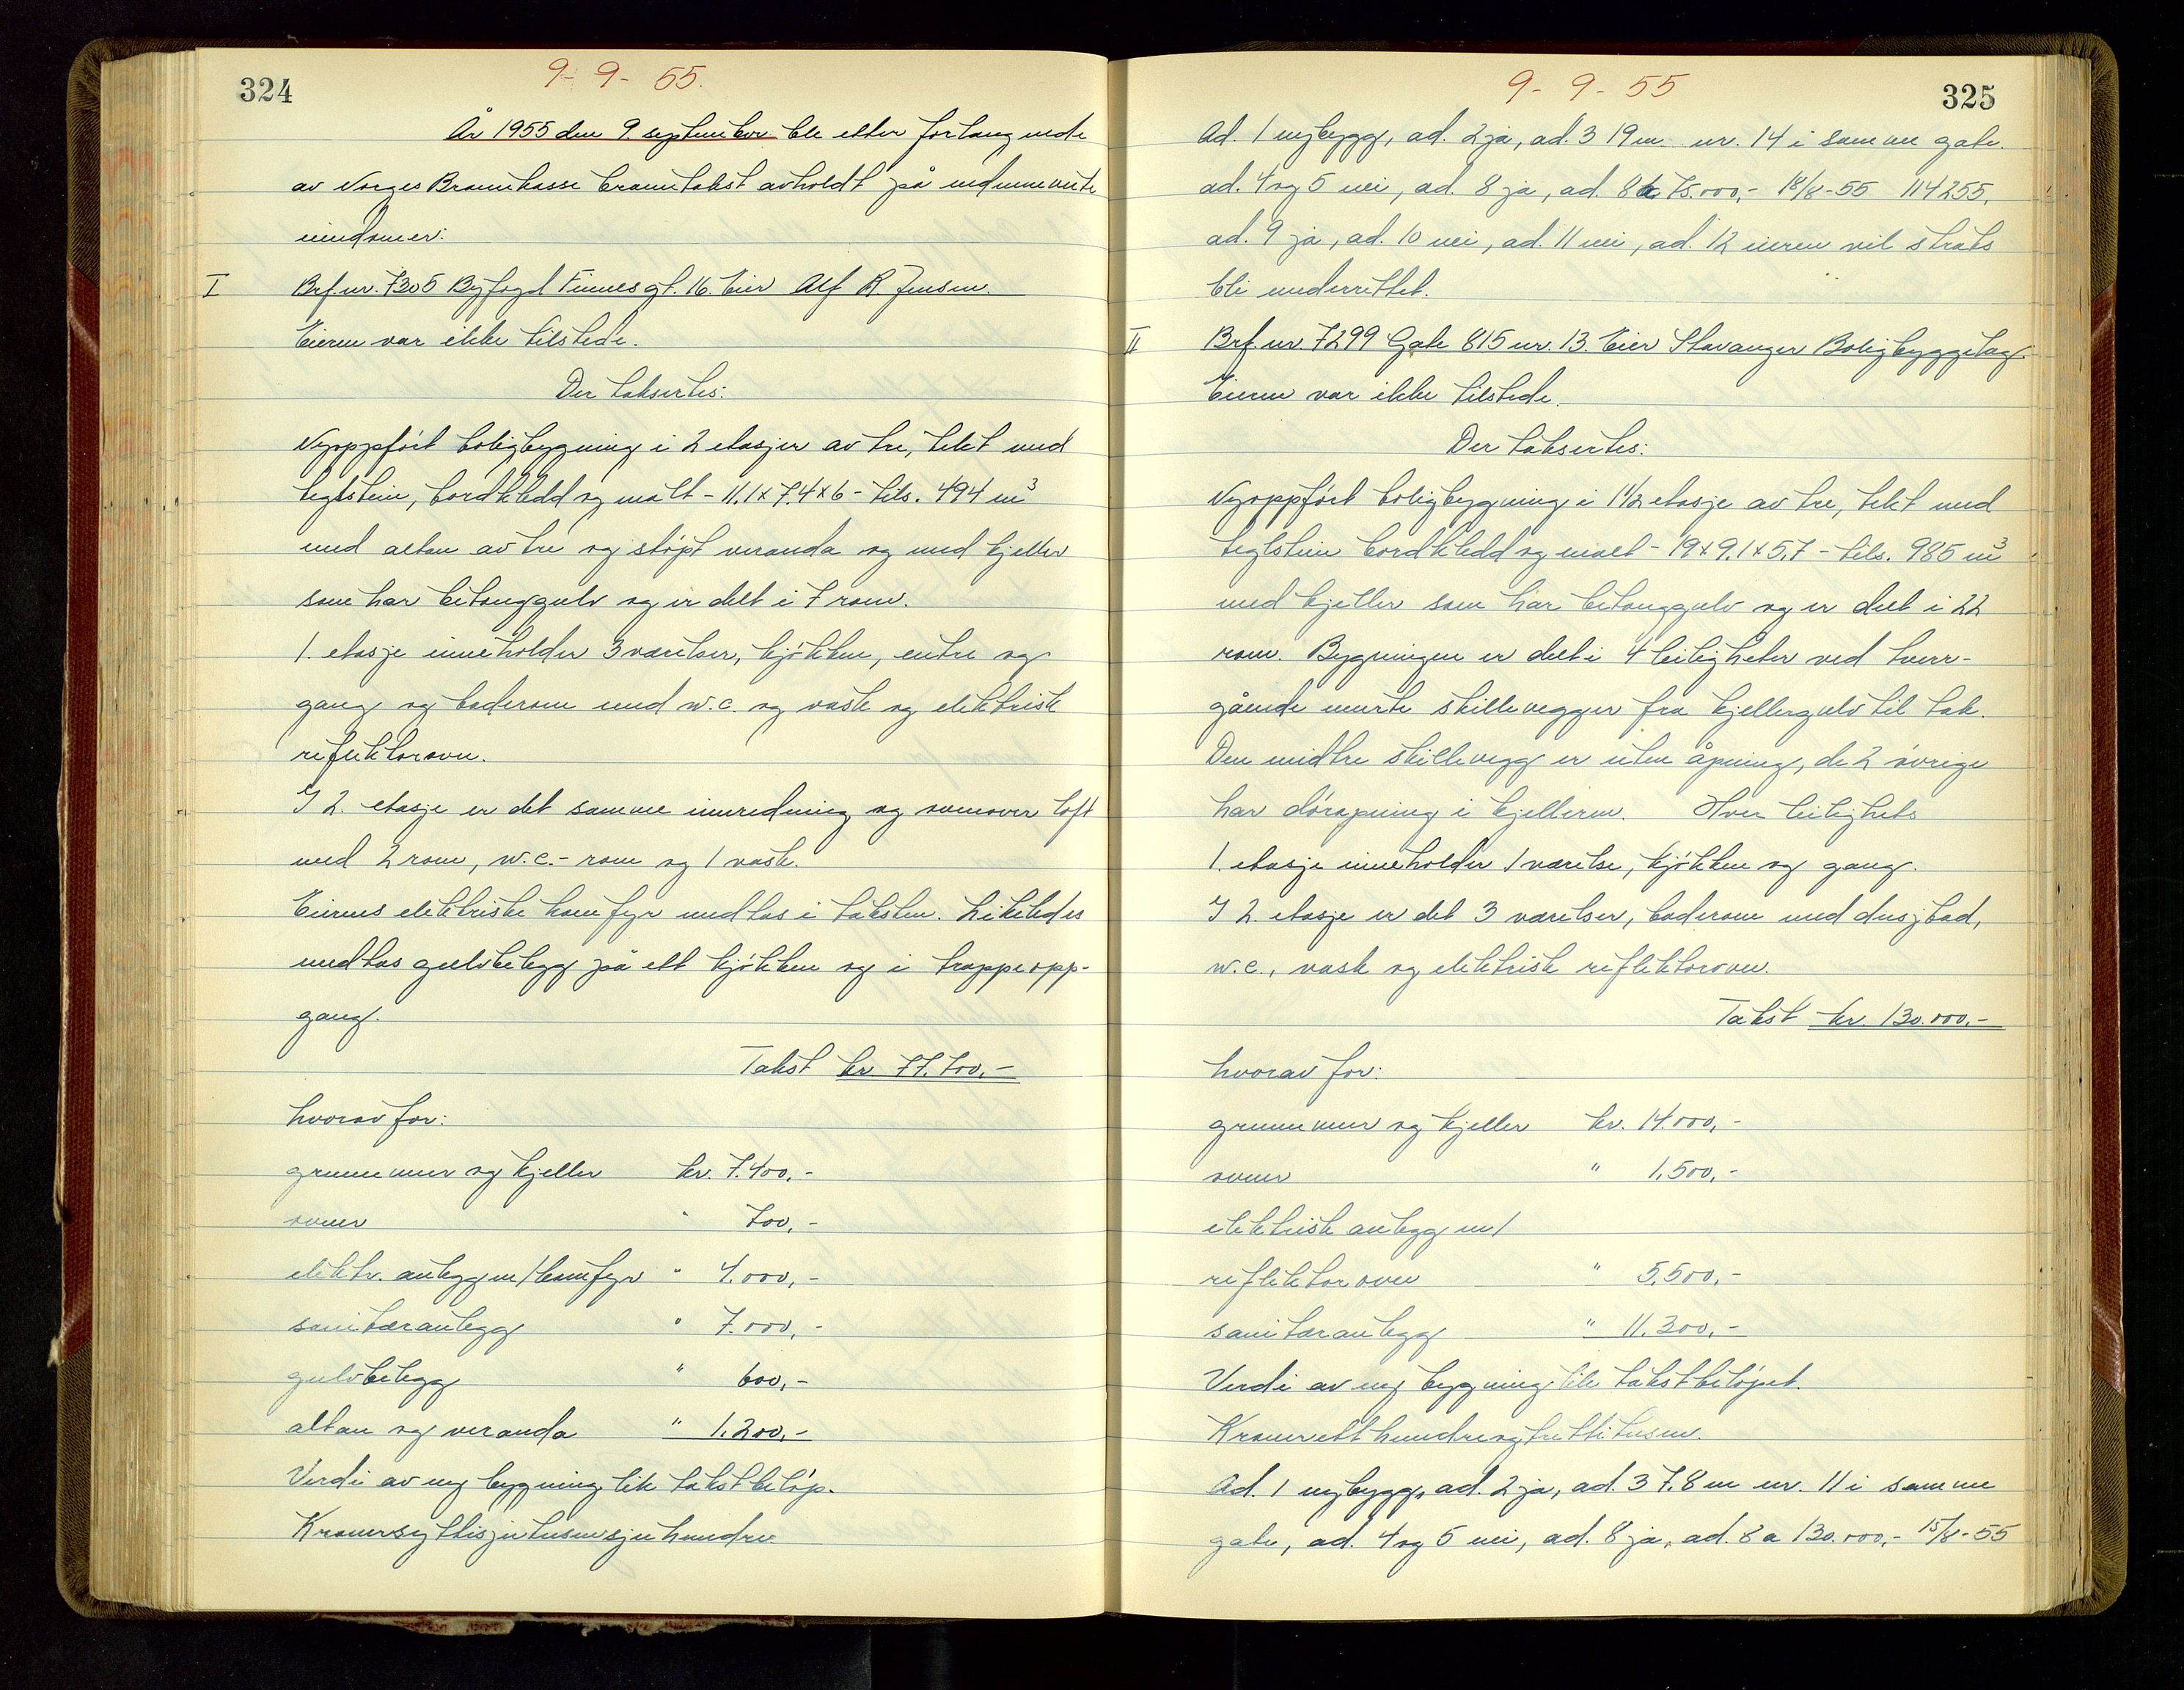 324
9- 9- 55.
År 1955 den 9. september ble etter forlangende
av Norges Brannkasse branntakst avholdt på nedennevnte
eiendomer:
I Brf.nr. 7305 Byfogd Finnesgt. 16. Eier Alf R. Jensen.
Eieren var ikke tilstede.
Der taksertes:
Nyoppført boligbygning i 2 etasjer av tre, tekt med
teglstein, bordkledd og malt - 11.1 x 7.4 x 6 - tils. 494 m³
med altan av tre og støpt veranda og med kjeller
som har betonggulv og er delt i 7 rom.
1. etasje inneholder 3 værelser, kjøkken, entre og
gang og baderom med w.c. og vask og elektrisk
reflektorovn.
I 2. etasje er det samme innredning og ovenover loft
med 2 rom, w.c.-rom og 1 vask.
Eierens elektriske komfyr medtas i taksten. Likeledes
medtas gulvbelegg på ett kjøkken og i trappeopp-
gang.
Takst kr. 77.700,-
hvorav for:
grunnmur og kjeller kr. 7.400,-
ovner " 700,-
elektr. anlegg m/komfyr " 4.000,-
sanitæranlegg " 7.000,-
gulvbelegg " 600,-
altan og veranda " 1.200,-
Verdi av ny bygning lik takstbeløp.
Kronersyttisjutusensjuhundre.
9- 9- 55
325
Ad. 1 nybygg, ad. 2 ja, ad. 3 19 m nr. 14 i samme gate.
ad. 4 og 5 nei, ad. 8 ja, ad. 8a 75.000,- 18/8-55 114255.
ad. 9 ja, ad. 10 nei, ad. 11 nei, ad. 12 eieren vil straks
bli underrettet.
II Brf.nr 7299 Gate 815 nr. 13. Eier Stavanger Boligbyggelag.
Eieren var ikke tilstede.
Der taksertes:
Nyoppført boligbygning i 1 1/2 etasje av tre, tekt med
teglstein bordkledd og malt - 19 x 9.1 x 5.7 - tils. 985 m³
med kjeller som har betonggulv og er delt i 22
rom. Bygningen er delt i 4 leiligheter ved tverr-
gående murte skillevegger fra kjellergulv til tak.
Den midtre skillevegg er uten åpning, de 2 øvrige
har døråpning i kjelleren. Hver leilighets
1. etasje inneholder 1 værelse, kjøkken og gang.
I 2. etasje er det 3 værelser, baderom med dusjbad,
w.c., vask og elektrisk reflektorovn.
Takst kr. 130.000.-
hvorav for:
grunnmur og kjeller kr. 14.000,-
ovner " 1.500,-
elektrisk anlegg m/
reflektorovn " 5.500,-
sanitæranlegg " 11.300,-
Verdi av ny bygning lik takstbeløpet.
Kroneretthundreogtrettitusen.
Ad. 1 nybygg, ad. 2 ja, ad. 3 7.8 m nr. 11 i samme
gate, ad. 4 og 5 nei, ad. 8 ja, ad. 8a 130.000,- 15/8-55